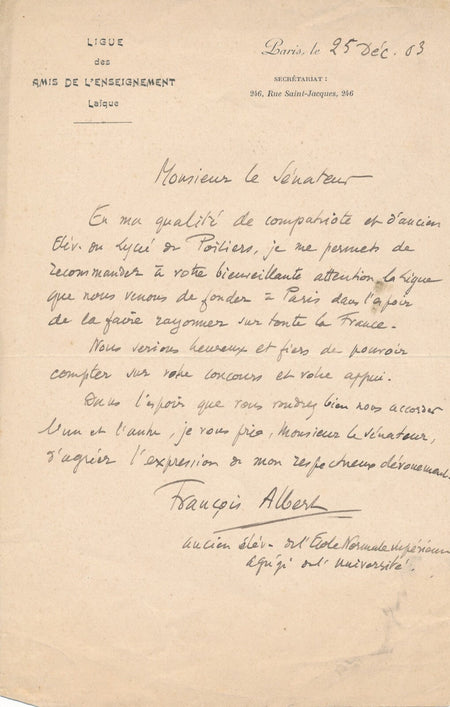 LIGUE
des
AMIS DE L'ENSEIGNEMENT
Laïque
Paris, le 25 Déc. 03
SECRÉTARIAT :
246, Rue Saint-Jacques, 246
Monsieur le Sénateur
En ma qualité de compatriote et d'ancien
élèv. du Lycée de Poitiers, je me permets de
recommander à votre bienveillante attention la Ligue
que nous venons de fonder à Paris dans l'espoir
de la faire rayonner sur toute la France.
Nous serions heureux et fiers de pouvoir
compter sur votre concours et votre appui.
Dans l'espoir que vous voudrez bien nous accorder
l'un et l'autre, je vous prie, Monsieur le Sénateur,
d'agréer l'expression de mon respectueux dévouement.
François Albert
ancien élèv. de l'École Normale supérieure
agrégé de l'Université.